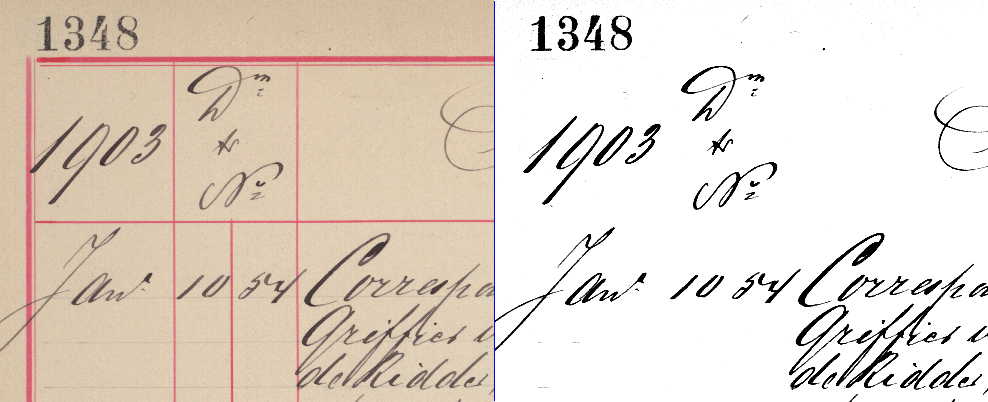 1348
Dm
1903 &
No
Jan. 10 54 Correspo
Griffier
de Ridder,
1348
Dm
1903 &
No
Jan. 10 54 Correspo
Griffier
de Ridder,